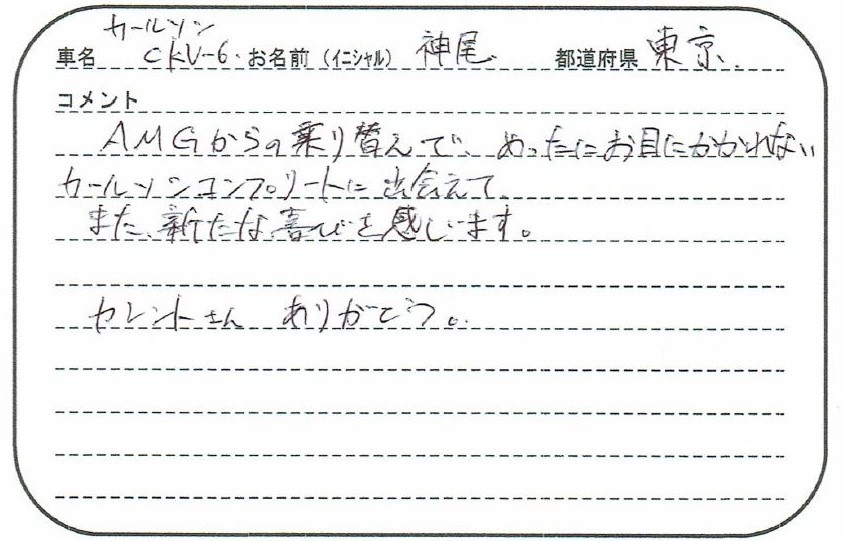 カールソン
車名 CKV-6. お名前 (イニシャル) 神尾 都道府県 東京
コメント
AMGからの乗り替えで、めったにお目にかかれない
カールソンコンプリートに出会えて、
また、新たな喜びを感じます。
カレントさん ありがとう。